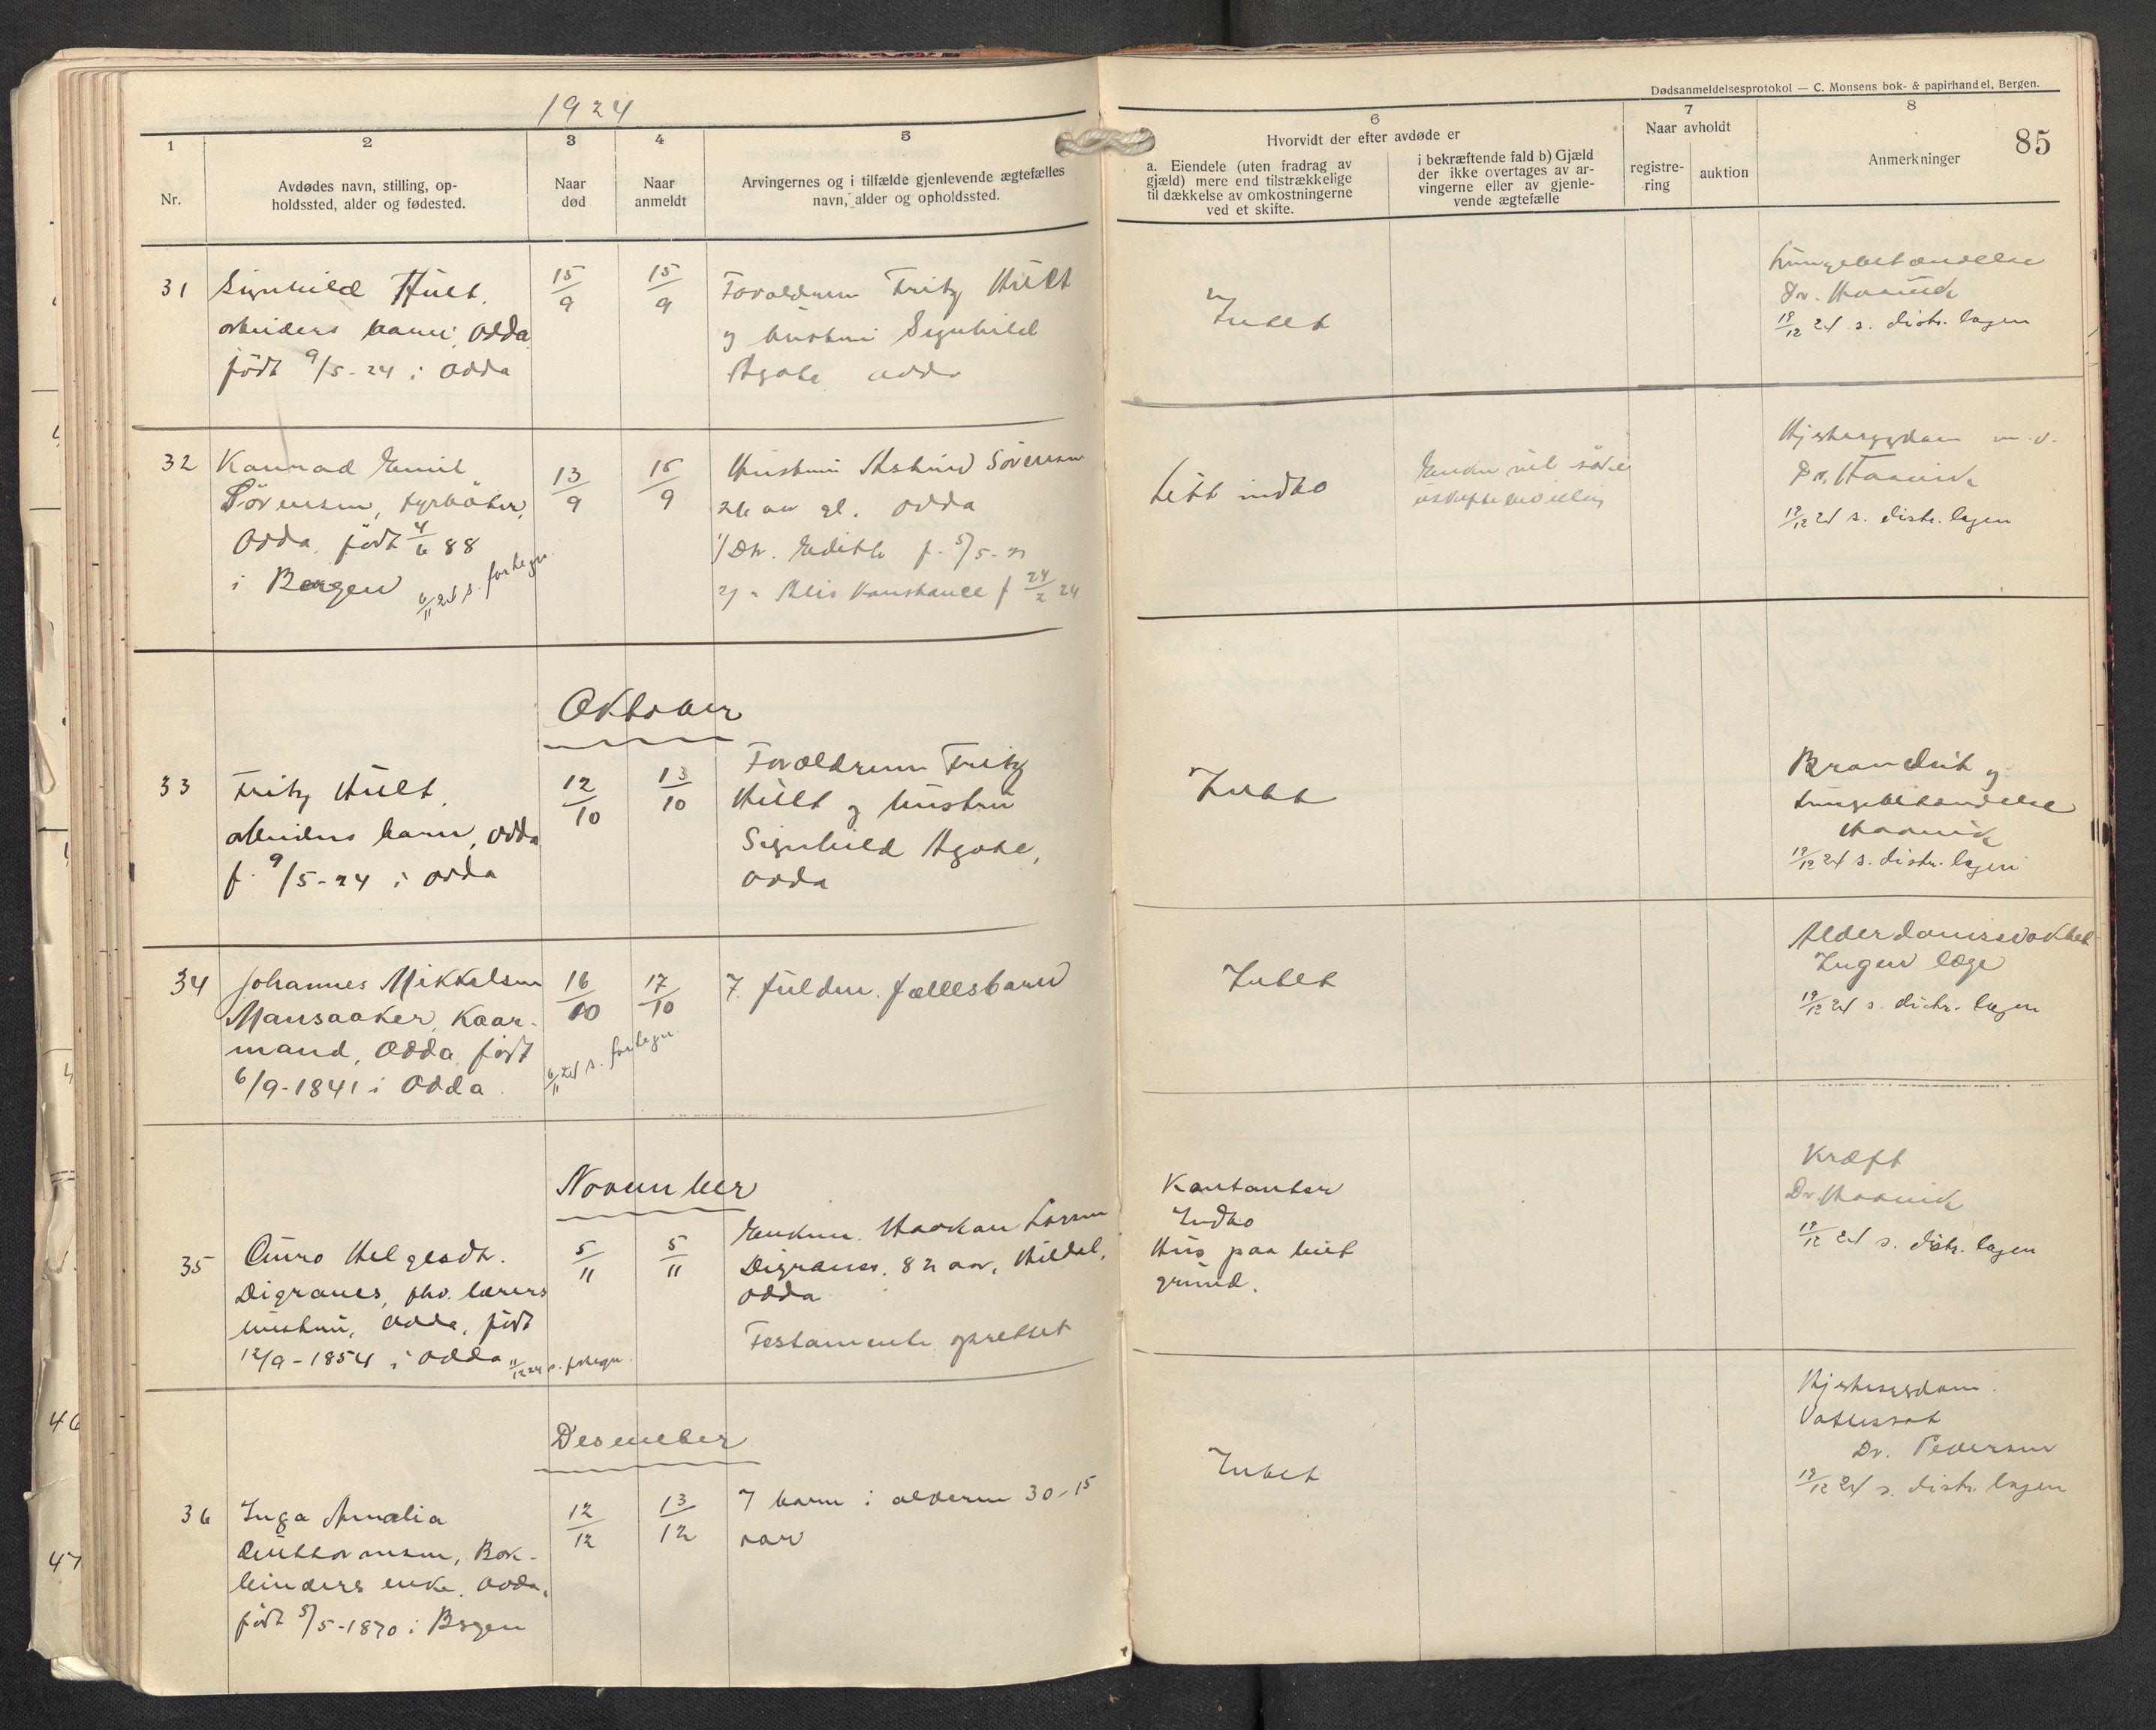 1924
Dødsanmeldelsesprotokol — C. Monsens bok- & papirhandel, Bergen.
85
1
Nr.
2
Avdødes navn, stilling, op-
holdssted, alder og fødested.
3
Naar
død
4
Naar
anmeldt
5
Arvingernes og i tilfælde gjenlevende ægtefælles
navn, alder og opholdssted.
6
Hvorvidt der efter avdøde er
a. Eiendele (uten fradrag av
gjæld) mere end tilstrækkelige
til dækkelse av omkostningerne
ved et skifte.
i bekræftende fald b) Gjæld
der ikke overtages av ar-
vingerne eller av gjenle-
vende ægtefælle
7
Naar avholdt
registre-
ring
auktion
8
Anmerkninger
31
Signhild Hult.
arbeiders barn, Odda
født 9/5-24 i Odda
15/9
15/9
Forældrene Fritz Hult
og hustru Signhild
Agate Odda
Intet
Lungebetændelse
Dr. Haanik
19/12 24 s. distr. lægen
32
Konrad Emil
Sörensen, fyrbøter,
Odda, født 4/6 88
i Bergen
6/11 24 s. fortegn.
13/9
15/9
Hustru Astrid Sörensen
26 aar gl. Odda
1/ Dtr. Edith f. 5/5-21
2/ " Alis Konstance f 24/2 24
Litt indbo
Enken vil søke
uskiftebevilling
Hjertesygdom m. v.
Dr. Haanik
19/12 24 s. distr. lægen
Oktober
33
Fritz Hult.
arbeiders barn, Odda
f. 9/5-24 i Odda
12/10
13/10
Forældrene Fritz
Hult og hustru
Signhild Agate,
Odda
Intet
Bronchit og
Lungebetændelse
Haanik
19/12 24 s. distr. lægen
34
Johannes Mikkelsen
Mansaaker, Kaar-
mand, Odda, født
6/9-1841 i Odda.
6/11 24 s. fortegn.
16/10
17/10
7. fuldm. fællesbarn
Intet
Alderdomssvakhet
Ingen læge
19/12 24 s. distr. lægen
November
35
Guro Helgesdtr.
Digranes, fhv. lærers
hustru, Odda, født
12/9-1854 i Odda
11/12 24 s. fortegn.
5/11
5/11
Enkem. Haakon Larsen
Digranes, 82 aar, Hildal,
Odda
Testamente oprettet
Kontanter
Indbo
Hus paa leiet
grund.
Kræft
Dr. Haanik
19/12 24 s. distr. lægen
Desember
36
Inga Amalia
Guttormsen, Bok-
binders enke, Odda,
født 5/5-1870 i Bergen
12/12
13/12
7 barn i alderen 30-15
aar
Intet
Hjertesygdom.
Vattersot
Dr. Pedersen
19/12 24 s. distr. lægen
46
47